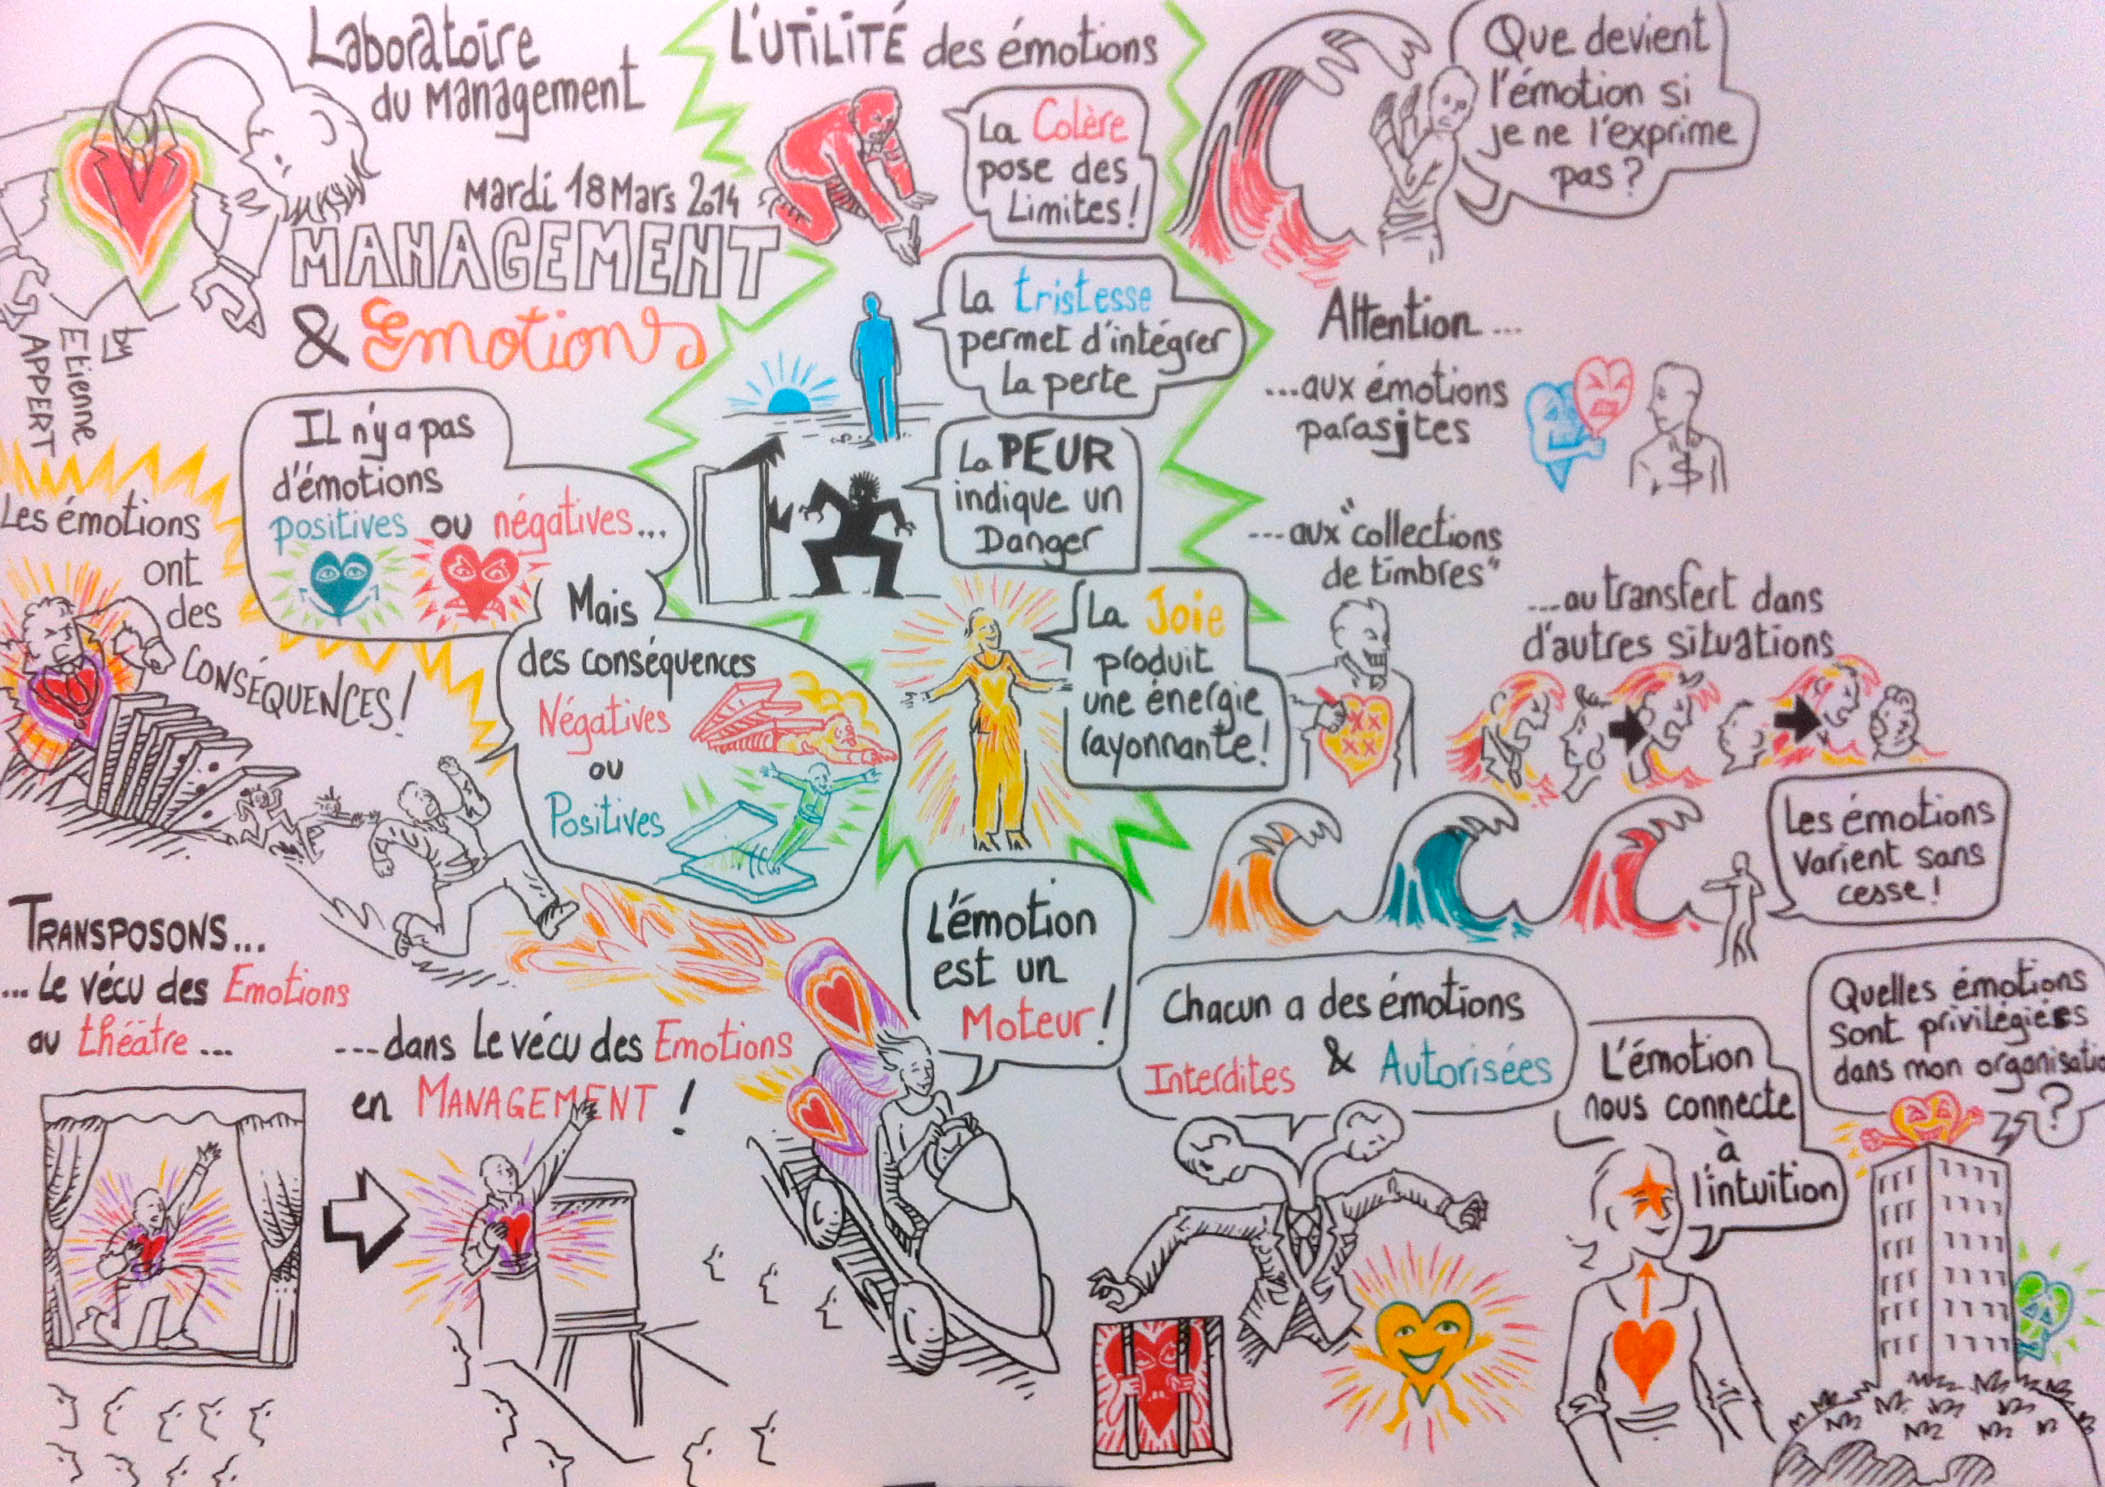 Laboratoire
du Management
Mardi 18 Mars 2014
MANAGEMENT
& Emotions
by
Etienne
APPERT
Il n'y a pas
d'émotions
positives ou négatives...
Mais
des conséquences
Négatives
ou
Positives
Les émotions
ont
des
CONSÉQUENCES!
TRANSPOSONS...
... Le vécu des Emotions
au théâtre...
...dans Le vécu des Emotions
en MANAGEMENT !
L'UTILITÉ des émotions
La Colère
pose des
Limites!
La tristesse
permet d'intégrer
La perte
La PEUR
indique un
Danger
La Joie
produit
une énergie
rayonnante!
L'émotion
est un
Moteur!
Que devient
l'émotion si
je ne l'exprime
pas?
Attention...
...aux émotions
parasites
$
...aux "collections
de timbres"
...au transfert dans
d'autres situations
Les émotions
varient sans
cesse!
Chacun a des émotions
Interdites & Autorisées
L'émotion
nous connecte
à
l'intuition
Quelles émotions
sont privilégiées
dans mon organisatio
?